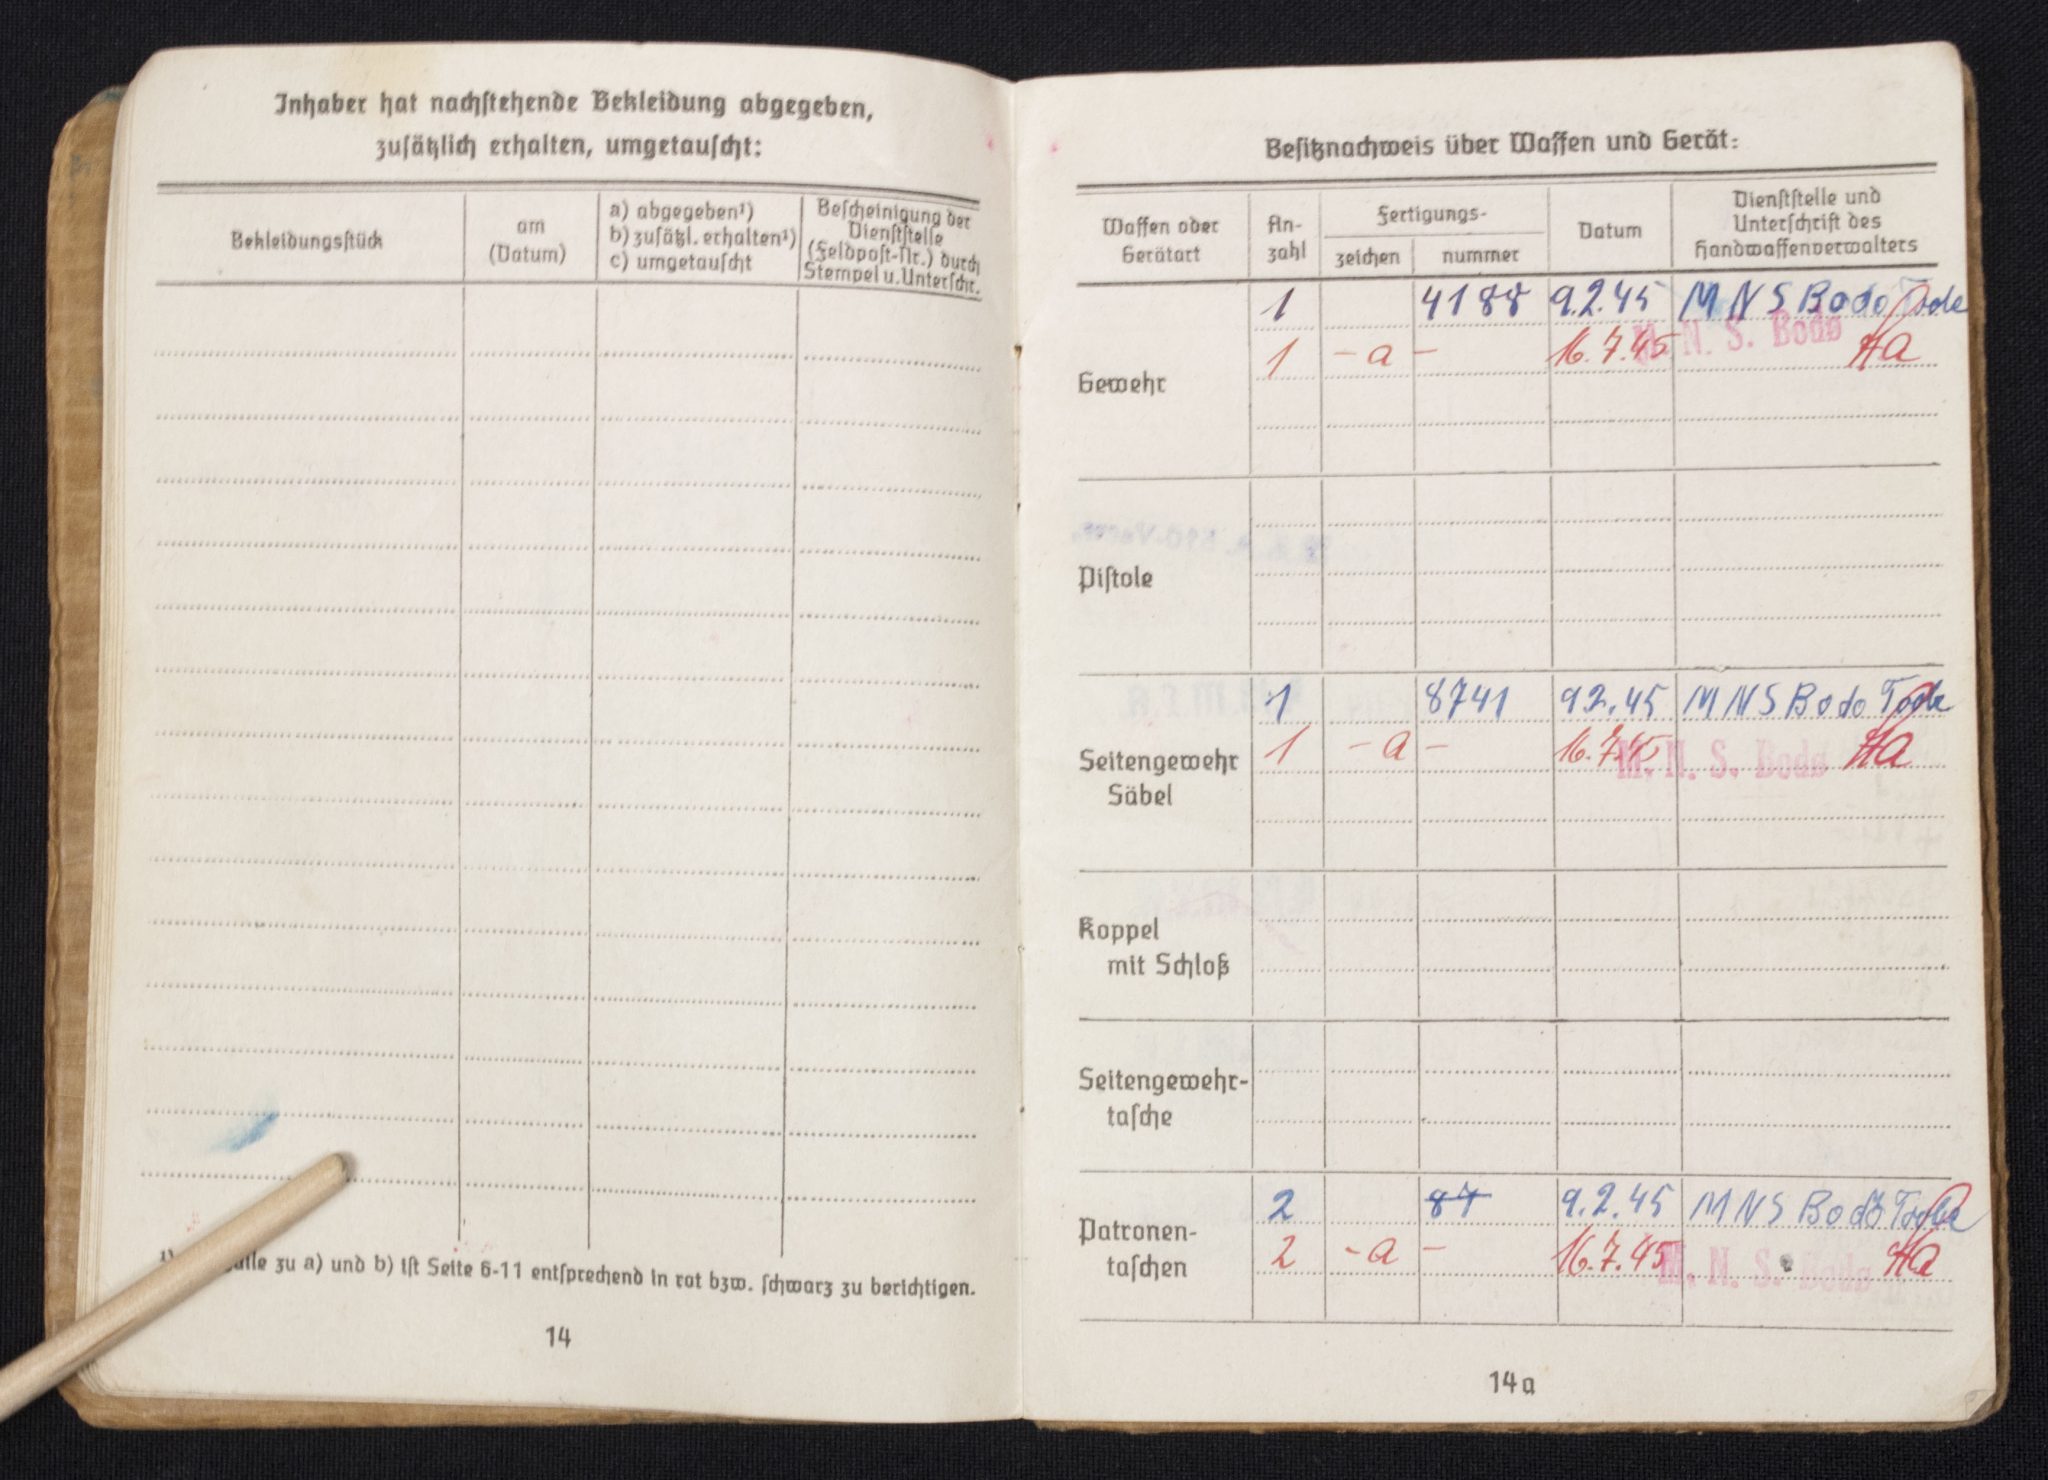 Inhaber hat nachstehende Bekleidung abgegeben,
zusätzlich erhalten, umgetauscht:
Bekleidungsstück
am
(Datum)
a) abgegeben¹)
b) zusätzl. erhalten¹)
c) umgetauscht
Bescheinigung der
Dienststelle
(Feldpost-Nr.) durch
Stempel u. Unterschr.
¹) zu a) und b) ist Seite 6-11 entsprechend in rot bzw. schwarz zu berichtigen.
14
Besitznachweis über Waffen und Gerät:
Waffen oder
Gerätart
An-
zahl
Fertigungs-
zeichen
nummer
Datum
Dienststelle und
Unterschrift des
Handwaffenverwalters
Gewehr
1 4188 9.2.45 M N S Bodo
1 - a - 16.7.45 Ha
M. N. S. Bodø
Pistole
Seitengewehr
Säbel
1 8741 9.2.45 M N S Bodo
1 - a - 16.7.45 Ha
M. N. S. Bodø
Koppel
mit Schloß
Seitengewehr-
tasche
Patronen-
taschen
2 87 9.2.45 M N S Bodo
2 - a - 16.7.45 Ha
M. N. S. Bodø
14a